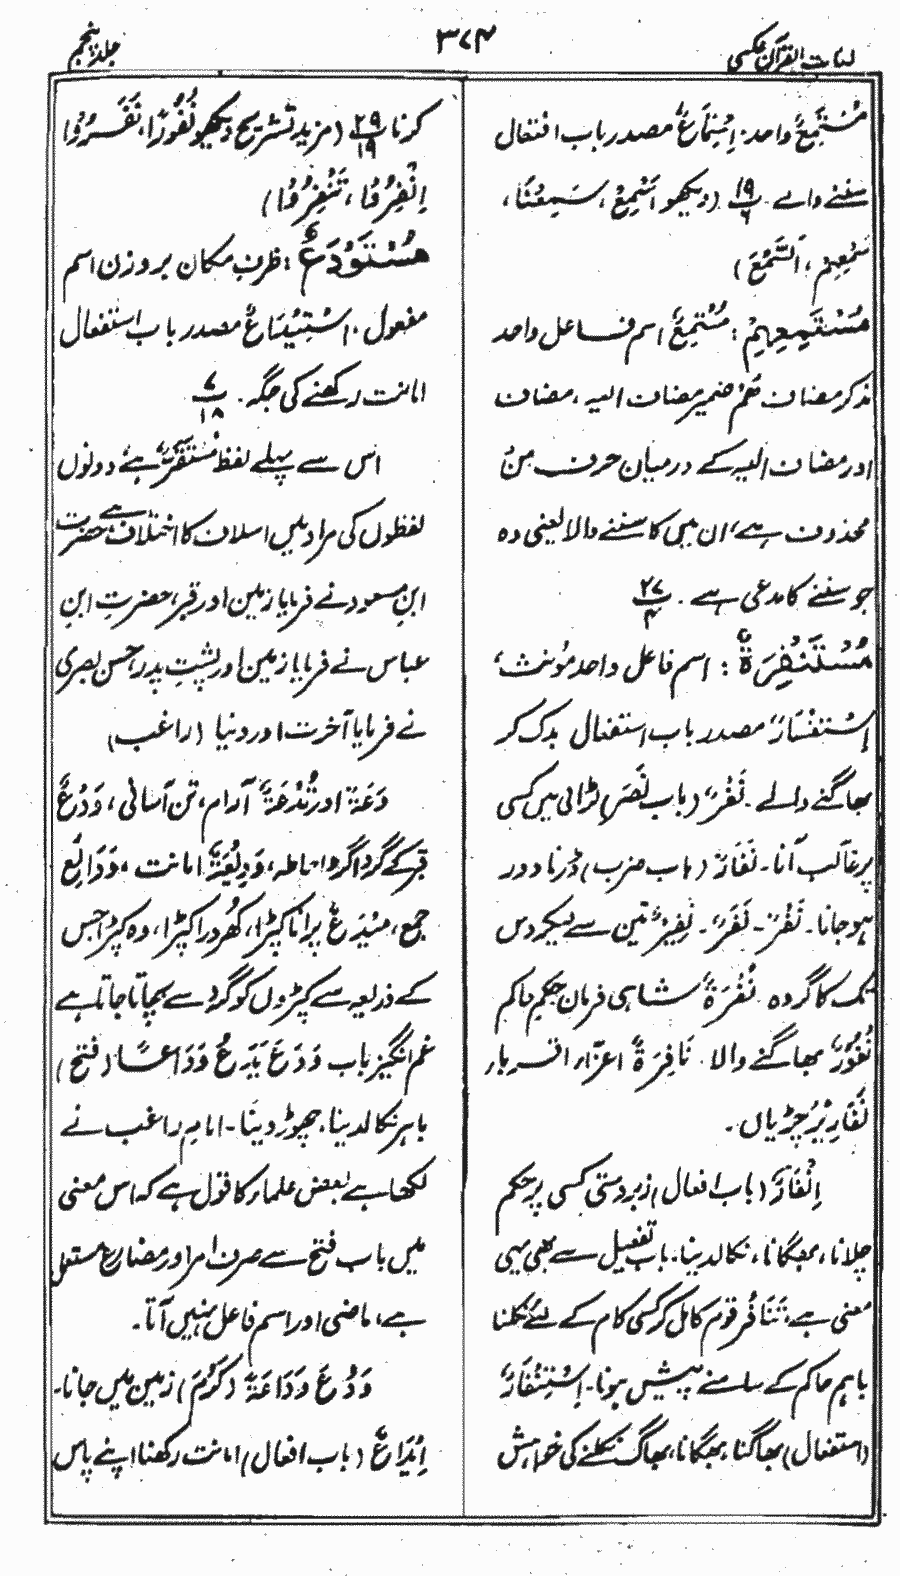 لغات القرآن عکسی
۳۷۴
جلد پنجم
مُسْتَمِعٌ واحد: اِسْتِمَاعٌ مصدر باب افتعال
سننے والے ۔ پ ۱۹ ۶ (دیکھو اَسْمِعْ، سَمِعْنَا،
سَمْعِهِمْ، اَلسَّمْعَ)
مُسْتَمِعِهِمْ : مُسْتَمِعٌ اسم فاعل واحد
مذکر مضاف ھُمْ ضمیر مضاف الیہ، مضاف
اور مضاف الیہ کے درمیان حرف مِنْ
محذوف ہے، ان میں کا سننے والا یعنی وہ
جو سننے کا مدعی ہے ۔ پ ۲۷ ۴
مُسْتَنْفِرَةٌ : اسم فاعل واحد مؤنث،
اِسْتِنْفَارٌ مصدر باب استفعال بدک کر
بھاگنے والے ۔ نَفْرٌ (باب نَصَرَ) لڑائی میں کسی
پر غالب آنا ۔ نَفَارٌ (باب ضرب) ڈرنا دور
ہوجانا ۔ نَفْرٌ ۔ نَفَرٌ ۔ نَفِيْرٌ تین سے لیکر دس
تک کا گروہ ۔ نُفْرَةٌ شاہی فرمان حکم حاکم
نُفُوْرٌ بھاگنے والا ۔ نَافِرَةٌ اعزاء اقربار
نَفَارِيْرُ چڑیاں ۔
اِنْفَارٌ (باب افعال) زبردستی کسی پر حکم
چلانا، بھگانا، نکالدینا ۔ باب تفعیل سے بھی یہی
معنی ہے، تَنَافُر قوم کا مل کر کسی کام کے لئے نکلنا
باہم حاکم کے سامنے پیش ہونا ۔ اِسْتِنْفَارٌ
(استفعال) بھاگنا، بھگانا، بھاگ نکلنے کی خواہش
کرنا پ ۲۹ ۱۹ (مزید تشریح دیکھو نُفُوْرًا، نَفَرًا
اِنْفِرُوْا، تَنْفِرُوْا)
مُسْتَوْدَعٌ : ظرف مکان بروزن اسم
مفعول ۔ اِسْتِيْدَاعٌ مصدر باب استفعال
امانت رکھنے کی جگہ ۔ پ ۷ ۱۸
اس سے پہلے لفظ مُسْتَقَرٌّ ہے دونوں
لفظوں کی مراد میں اسلاف کا اختلاف ہے حضرت
ابن مسعود نے فرمایا زمین اور قبر، حضرت ابن
عباس نے فرمایا زمین اور پشتِ پدر، حسن بصری
نے فرمایا آخرت اور دنیا (راغب)
دَعَةٌ اور تُدْعَةٌ آرام، تن آسانی، وَدْعٌ
قبر کے گرداگرد احاطہ، وَدِيْعَةٌ امانت، وَدَائِعُ
جمع، مِيْدَعٌ پرانا کپڑا، کھردرا کپڑا، وہ کپڑا جس
کے ذریعہ سے کپڑوں کو گرد سے بچایا جاتا ہے
غم انگیز باب وَدَعَ يَدَعُ وَدَاعًا (فتح)
باہر نکالدینا، چھوڑ دینا ۔ امام راغب نے
لکھا ہے بعض علمار کا قول ہے کہ اس معنی
میں باب فتح سے صرف امر اور مضارع مستعمل
ہے، ماضی اور اسم فاعل نہیں آتا ۔
وَدُعَ وَدَاعَةً (کَرُمَ) زمین میں جانا ۔
اِيْدَاعٌ (باب افعال) امانت رکھنا اپنے پاس